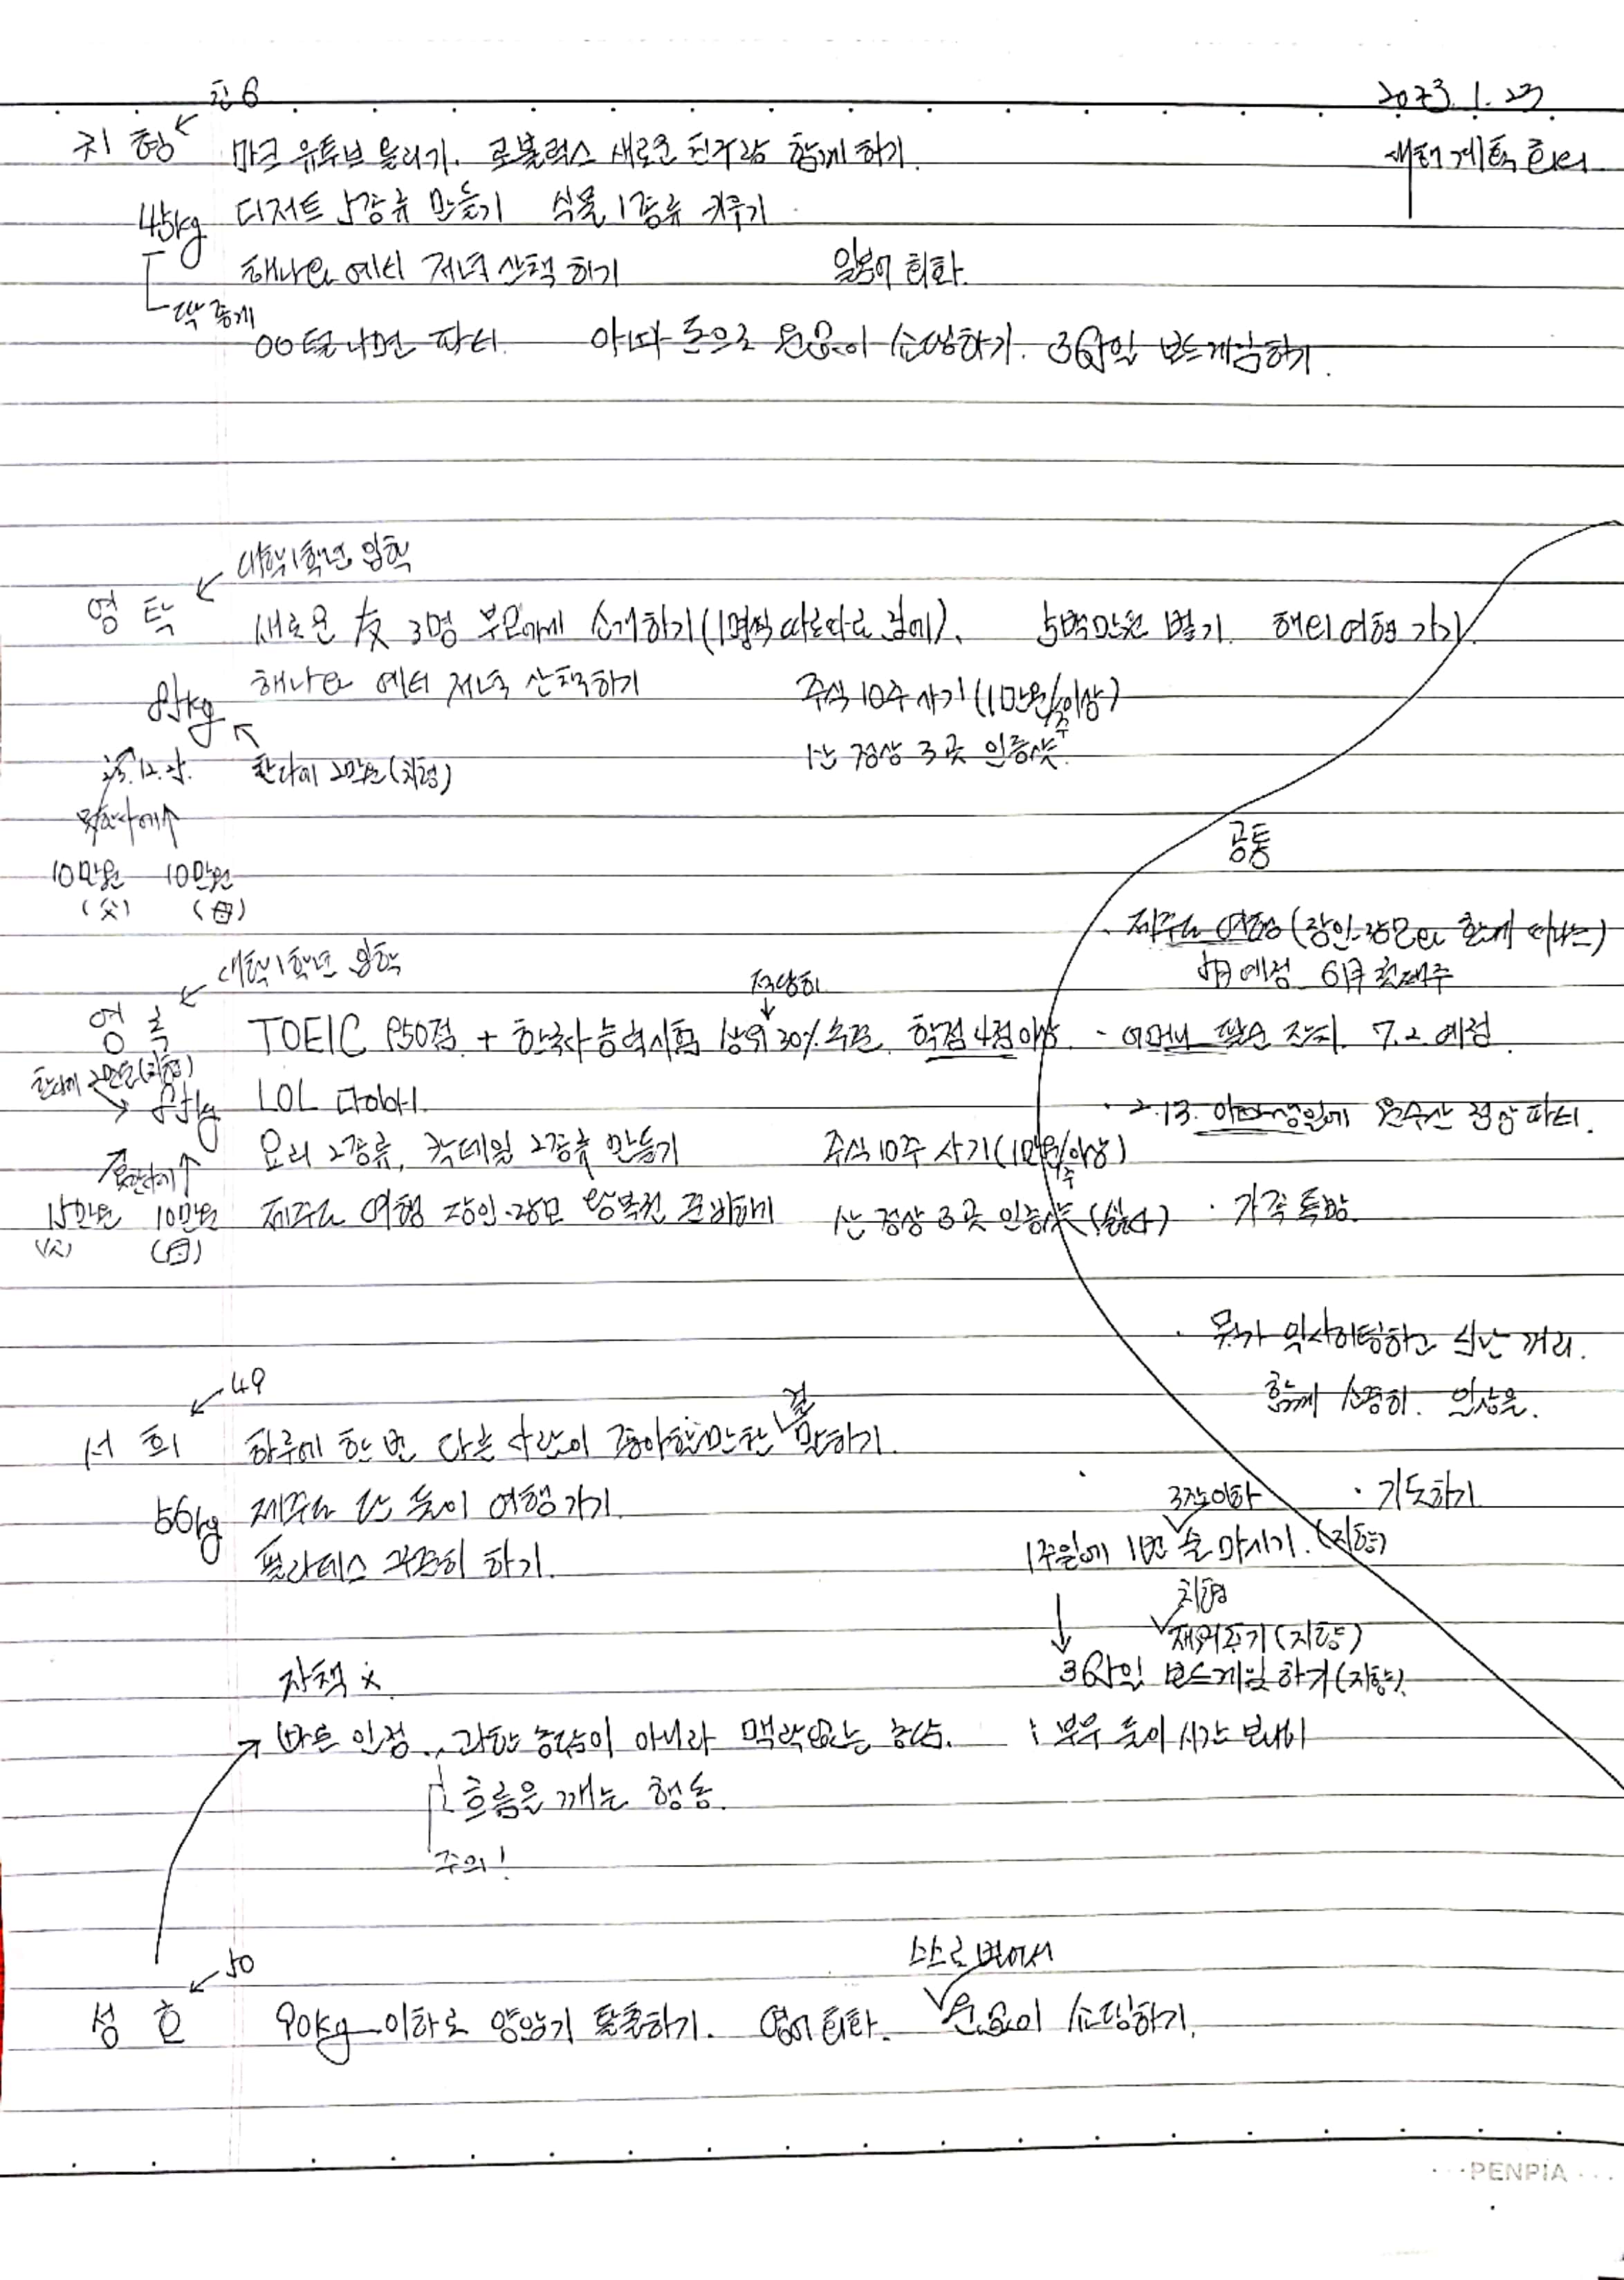 초6
2023. 1. 23
치형 마크 유튜브 올리기. 로블럭스 새로운 친구랑 함께 하기.
새해 계획 회의
45kg 디저트 5종류 만들기 식물 1종류 키우기
해나 예티 저녁 산책 하기 일본어 회화.
딱 좋게
OO 털나면 파티. 아빠 돈으로 원 없이 쇼핑하기. 36각일 보드게임하기.
대학 1학년 입학
영탁 새로운 友 3명 부모에게 소개하기 (1명씩 따로따로 집에). 5백만원 벌기. 해외여행 가기.
85kg 해나 예티 저녁 산책하기 주식 10주 사기 (1만원/주 이상)
산 정상 3곳 인증샷.
23. 12. 25. 한다에 2만원 (치형)
못한다에
10만원 10만원
(父) (母)
공통
· 제주도 여행 (장인·장모와 함께 떠나는)
예정 6月 첫째주
대학 1학년 입학
적당히
영록 TOEIC 850점 + 한국사능력시험 상위 30% 수준. 학점 4점이상.
· 어머니 팔순 잔치. 7. 2. 예정.
한다에 2만원 (치형)
85kg LOL 다이아.
· 2. 13. 아빠생일에 정상 파티.
요리 2종류, 칵테일 2종류 만들기 주식 10주 사기 (1만원/주 이상)
못한다에
15만원 10만원 제주도 여행 장인·장모 왕복권 준비하기 산 정상 3곳 인증샷
(父) (母)
· 가족 톡방.
· 뭔가 익사이팅하고 신난 꺼리.
함께 인상을.
49
서희 하루에 한 번 다른 사람이 좋아할만한 걸 말하기.
56kg 제주도 단 둘이 여행가기.
· 기도하기
필라테스 꾸준히 하기.
3잔이하
1주일에 1번 술 마시기. (지향)
치형
재워주기 (지향)
36각일 보드게임 하기 (지향).
자책 x.
바른 인정. 과한 농담이 아니라 맥락없는 농담. : 부부 둘이 시간 보내기
흐름을 깨는 행동.
주의!
50
스스로 벌어서
성호 90kg 이하로 양압기 탈출하기. 영어 회화. 원 없이 쇼핑하기.
PENPIA